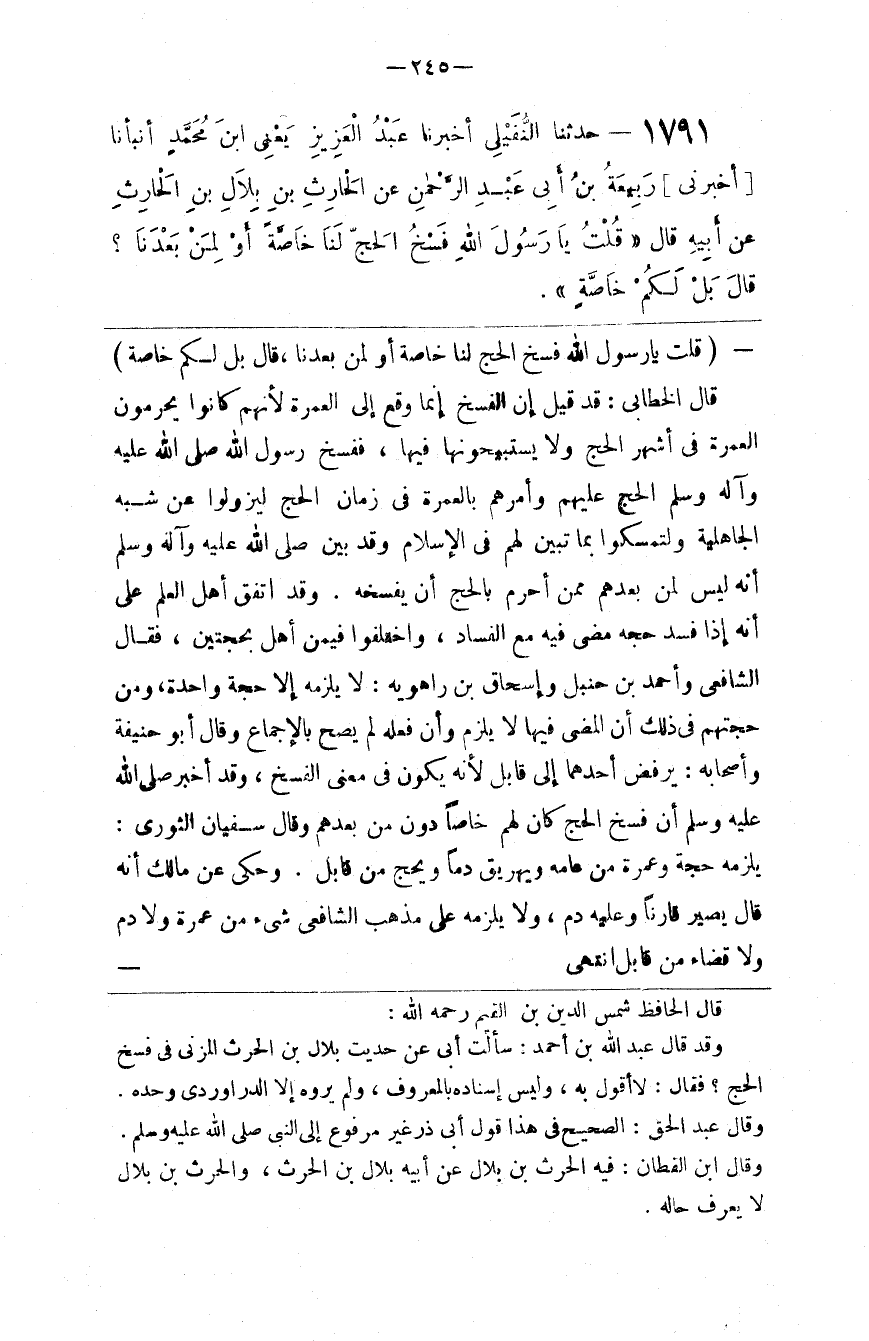 —٢٤٥—
١٧٩١ — حدثنا النُّفَيْلِي أخبرنا عَبْدُ الْعَزِيزِ يَعْنِى ابنَ مُحَمَّدٍ أنبأنا
[ أخبرنى ] رَبِيعَةُ بنُ أَبِى عَبْدِ الرَّحْمٰنِ عن الحَارِثِ بنِ بِلَالِ بنِ الحَارِثِ
عن أَبِيهِ قال « قُلْتُ يَا رَسُولَ اللهِ فَسْخُ الحَجِّ لَنَا خَاصَّةً أَوْ لِمَنْ بَعْدَنَا ؟
قالَ بَلْ لَكُمْ خَاصَّةٍ » .
— ( قلت يارسول الله فسخ الحج لنا خاصة أو لمن بعدنا ،قال بل لكم خاصة )
قال الخطابى : قد قيل إن الفسخ إنما وقع إلى العمرة لأنهم كانوا يحرمون
العمرة فى أشهر الحج ولا يستبيحونها فيها ، ففسخ رسول الله صلى الله عليه
وآله وسلم الحج عليهم وأمرهم بالعمرة فى زمان الحج ليزولوا عن شبه
الجاهلية ولتمسكوا بما تبين لهم فى الإسلام وقد بين صلى الله عليه وآله وسلم
أنه ليس لمن بعدهم ممن أحرم بالحج أن يفسخه . وقد اتفق أهل العلم على
أنه إذا فسد حجه مضى فيه مع الفساد ، واختلفوا فيمن أهل بحجتين ، فقال
الشافعى وأحمد بن حنبل وإسحاق بن راهويه : لا يلزمه إلا حجة واحدة، ومن
حجتهم فى ذلك أن المضى فيها لا يلزم وأن فعله لم يصح بالإجماع وقال أبو حنيفة
وأصحابه : يرفض أحدهما إلى قابل لأنه يكون فى معنى الفسخ ، وقد أخبر صلى الله
عليه وسلم أن فسخ الحج كان لهم خاصاً دون من بعدهم وقال سفيان الثورى :
يلزمه حجة وعمرة من عامه ويهريق دماً ويحج من قابل . وحكى عن مالك أنه
قال يصير قارناً وعليه دم ، ولا يلزمه على مذهب الشافعى شىء من عمرة ولا دم
ولا قضاء من قابل انتهى —
قال الحافظ شمس الدين بن القيم رحمه الله :
وقد قال عبد الله بن أحمد : سألت أبى عن حديث بلال بن الحرث المزنى فى فسخ
الحج ؟ فقال : لا أقول به ، وليس إسناده بالمعروف ، ولم يروه إلا الدراوردى وحده .
وقال عبد الحق : الصحيح فى هذا قول أبى ذر غير مرفوع إلى النبى صلى الله عليه وسلم .
وقال ابن القطان : فيه الحرث بن بلال عن أبيه بلال بن الحرث ، والحرث بن بلال
لا يعرف حاله .